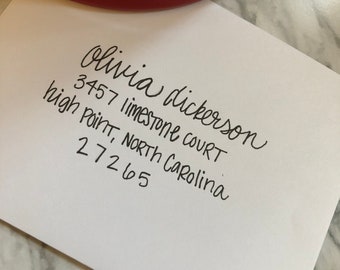 olivia dickerson
3457 limestone court
high point, north carolina
27265